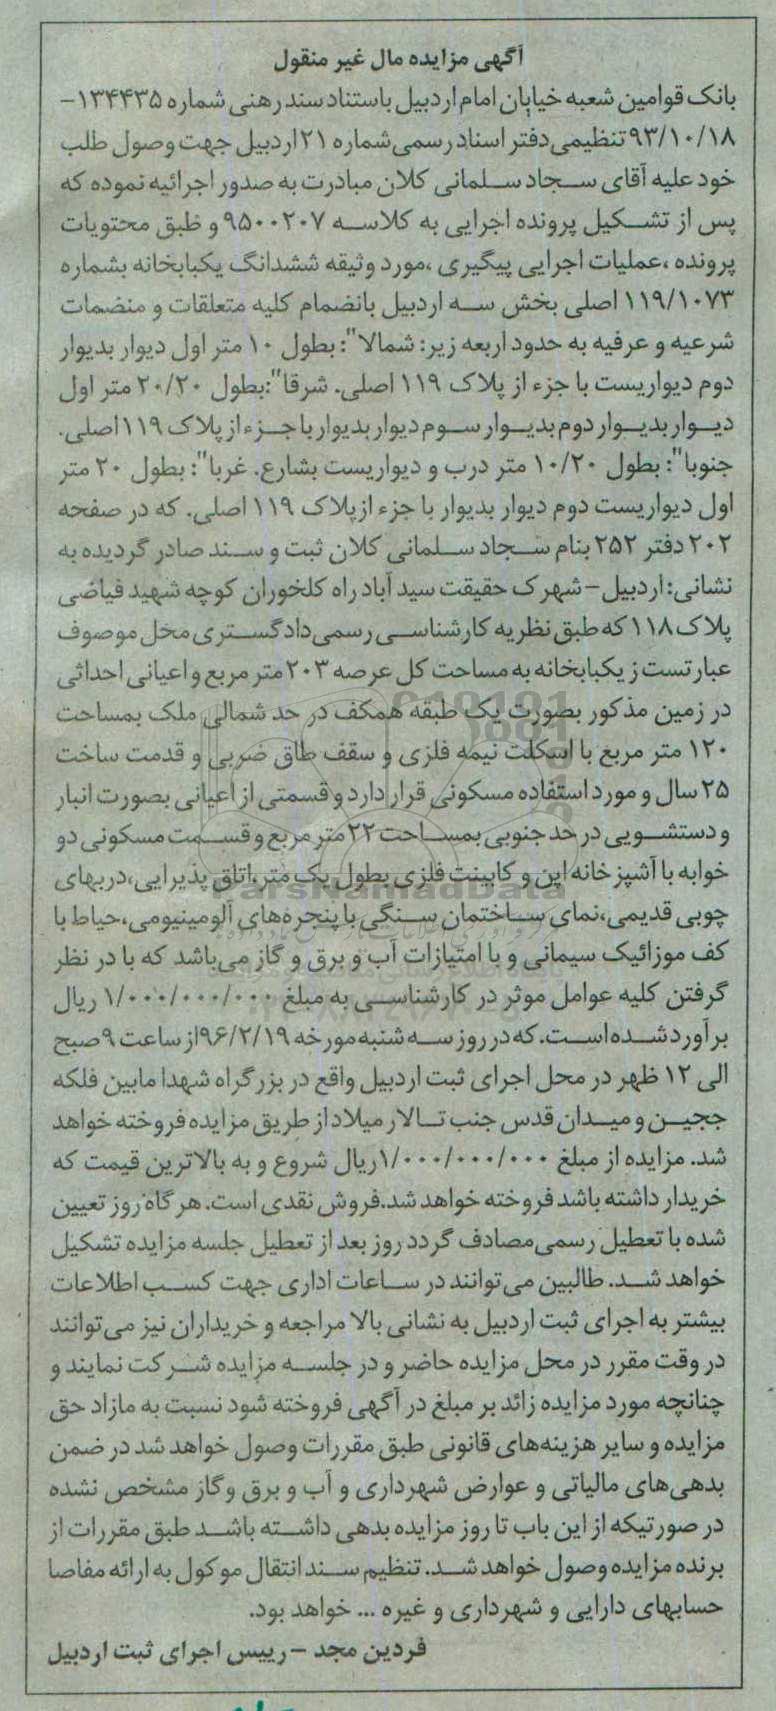 آگهی مزایده مال غیر منقول
بانک قوامین شعبه خیابان امام اردبیل باستناد سند رهنی شماره ۱۳۴۴۳۵-
۹۳/۱۰/۱۸ تنظیمی دفتر اسناد رسمی شماره ۲۱ اردبیل جهت وصول طلب
خود علیه آقای سجاد سلمانی کلان مبادرت به صدور اجرائیه نموده که
پس از تشکیل پرونده اجرایی به کلاسه ۹۵۰۰۲۰۷ و طبق محتویات
پرونده ،عملیات اجرایی پیگیری ،مورد وثیقه ششدانگ یکبابخانه بشماره
۱۱۹/۱۰۷۳ اصلی بخش سه اردبیل بانضمام کلیه متعلقات و منضمات
شرعیه و عرفیه به حدود اربعه زیر: شمالا": بطول ۱۰ متر اول دیوار بدیوار
دوم دیواریست با جزء از پلاک ۱۱۹ اصلی. شرقا":بطول ۲۰/۲۰ متر اول
دیوار بدیوار دوم بدیوار سوم دیوار بدیوار با جزء از پلاک ۱۱۹ اصلی.
جنوبا": بطول ۱۰/۲۰ متر درب و دیواریست بشارع. غربا": بطول ۲۰ متر
اول دیواریست دوم دیوار بدیوار با جزء ازپلاک ۱۱۹ اصلی. که در صفحه
۲۰۲ دفتر ۲۵۲ بنام سجاد سلمانی کلان ثبت و سند صادر گردیده به
نشانی: اردبیل-شهرک حقیقت سید آباد راه کلخوران کوچه شهید فیاضی
پلاک ۱۱۸ که طبق نظریه کارشناسی رسمی دادگستری محل موصوف
عبارتست ز یکبابخانه به مساحت کل عرصه ۲۰۳ متر مربع و اعیانی احداثی
در زمین مذکور بصورت یک طبقه همکف در حد شمالی ملک بمساحت
۱۲۰ متر مربع با اسکلت نیمه فلزی و سقف طاق ضربی و قدمت ساخت
۲۵ سال و مورد استفاده مسکونی قرار دارد و قسمتی از اعیانی بصورت انبار
و دستشویی در حد جنوبی بمساحت ۲۲ متر مربع و قسمت مسکونی دو
خوابه با آشپزخانه اپن و کابینت فلزی بطول یک متر،اتاق پذیرایی،دربهای
چوبی قدیمی،نمای ساختمان سنگی با پنجره‌های آلومینیومی،حیاط با
کف موزائیک سیمانی و با امتیازات آب و برق و گاز می‌باشد که با در نظر
گرفتن کلیه عوامل موثر در کارشناسی به مبلغ ۱/۰۰۰/۰۰۰/۰۰۰ ریال
برآورد شده است. که در روز سه شنبه مورخه ۹۶/۲/۱۹ از ساعت ۹ صبح
الی ۱۲ ظهر در محل اجرای ثبت اردبیل واقع در بزرگراه شهدا مابین فلکه
ججین و میدان قدس جنب تالار میلاد از طریق مزایده فروخته خواهد
شد. مزایده از مبلغ ۱/۰۰۰/۰۰۰/۰۰۰ریال شروع و به بالاترین قیمت که
خریدار داشته باشد فروخته خواهد شد.فروش نقدی است. هر گاه روز تعیین
شده با تعطیل رسمی مصادف گردد روز بعد از تعطیل جلسه مزایده تشکیل
خواهد شد. طالبین می‌توانند در ساعات اداری جهت کسب اطلاعات
بیشتر به اجرای ثبت اردبیل به نشانی بالا مراجعه و خریداران نیز می‌توانند
در وقت مقرر در محل مزایده حاضر و در جلسه مزایده شرکت نمایند و
چنانچه مورد مزایده زائد بر مبلغ در آگهی فروخته شود نسبت به مازاد حق
مزایده و سایر هزینه‌های قانونی طبق مقررات وصول خواهد شد در ضمن
بدهی‌های مالیاتی و عوارض شهرداری و آب و برق وگاز مشخص نشده
در صورتیکه از این باب تا روز مزایده بدهی داشته باشد طبق مقررات از
برنده مزایده وصول خواهد شد. تنظیم سند انتقال موکول به ارائه مفاصا
حسابهای دارایی و شهرداری و غیره ... خواهد بود.
فردین مجد -رییس اجرای ثبت اردبیل
ParsNamadData